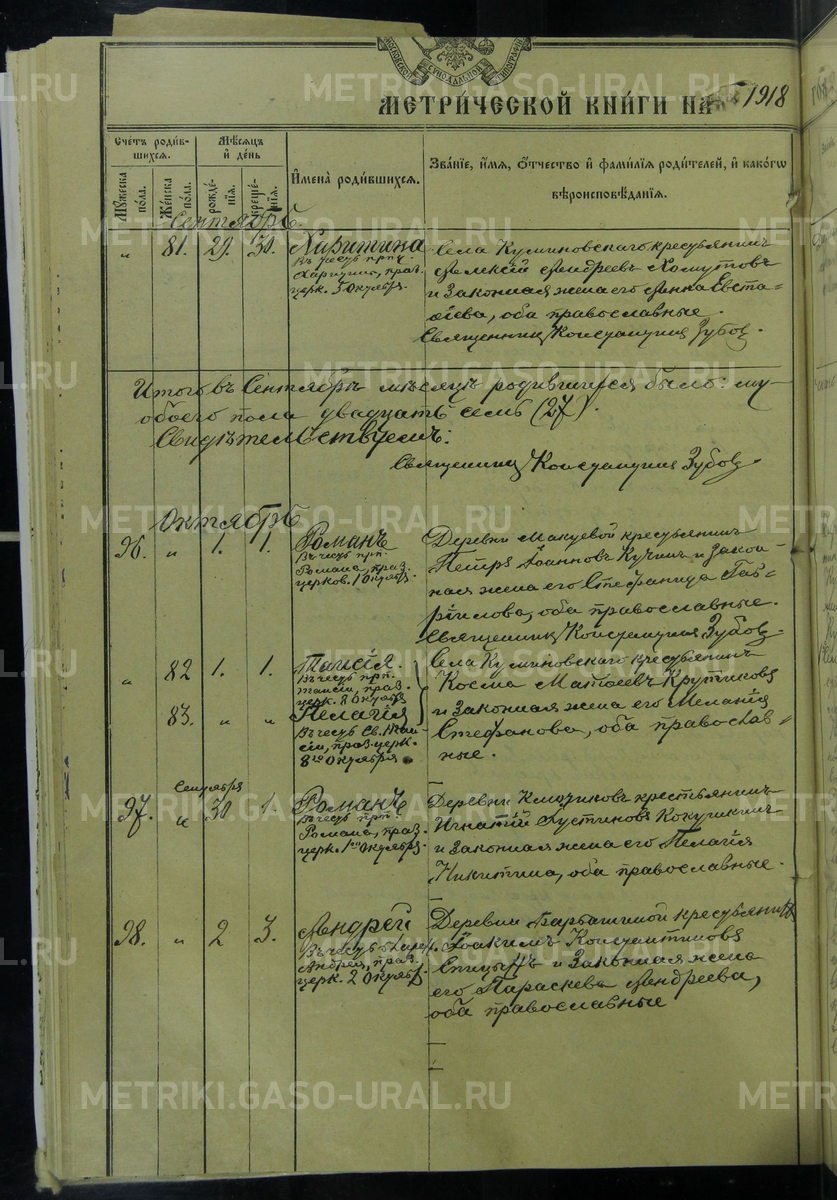 МЕТРИ́ЧЕСКОЙ КНИ́ГИ НА 1918
Сче́тъ роди́в-
шихся.
Мѣ́сяцъ
и҆ де́нь
Мꙋ́жеска
по́ла.
Же́нска
по́ла.
рожде́-
нїѧ.
креще́-
нїѧ.
И҆мена̀ роди́вшихся.
Зва́нїе, и҆́мѧ, ѻ҆́тчество и҆ фами́лїѧ роди́телей, и҆ како́гѡ
вѣроисповѣ́данїѧ.
Сентябрь.
" 81. 29. 30. Харитина
въ честь прп.
Харитины, праз.
церк. 5 Октября.
Села Куминовскаго крестьянинъ
Алексѣй Андреевъ Хомутовъ
и законная жена его Анна Евста-
фіева, оба православные.
Священникъ Константинъ Зубовъ.
Итого въ Сентябрѣ мѣсяцѣ родившихся было: му-
обоего пола двадцать семь (27).
Свидѣтельствуемъ:
Священникъ Константинъ Зубовъ.
Октябрь
96. " 1. 1. Романъ
въ честь прп.
Романа, праз.
церков. 1 Октября.
Деревни Макуевой крестьянинъ
Петръ Іоанновъ Кучинъ и закон-
ная жена его Стефанида Гав-
ріилова, оба православные.
Священникъ Константинъ Зубовъ
" 82 1. 1. Таисія.
въ честь прп.
Таисіи, праз.
церк. 8 Октября
83. " " Пелагія
въ честь св. Пела-
гіи, праз. церк.
8го Октября
Села Куминовскаго крестьянинъ
Косма Матѳеевъ Крутиковъ
и законная жена его Меланія
Стефанова, оба православ-
ные.
Сентября
97. " 30 1. Романъ
въ честь прп.
Романа, праз.
церк. 1го Октября.
Деревни Ключиковъ крестьянинъ
Игнатій Іустиновъ Кокушкинъ
и законная жена его Пелагія
Никитина, оба православные.
98. " 2 3. Андрей
въ честь
Андрея, праз.
церк. 2 Октябр.
Деревни Барбашиной крестьянинъ
Іоакимъ Константиновъ
Спицынъ и законная жена
его Параскева Андреева,
оба православные
METRIKI.GASO-URAL.RU